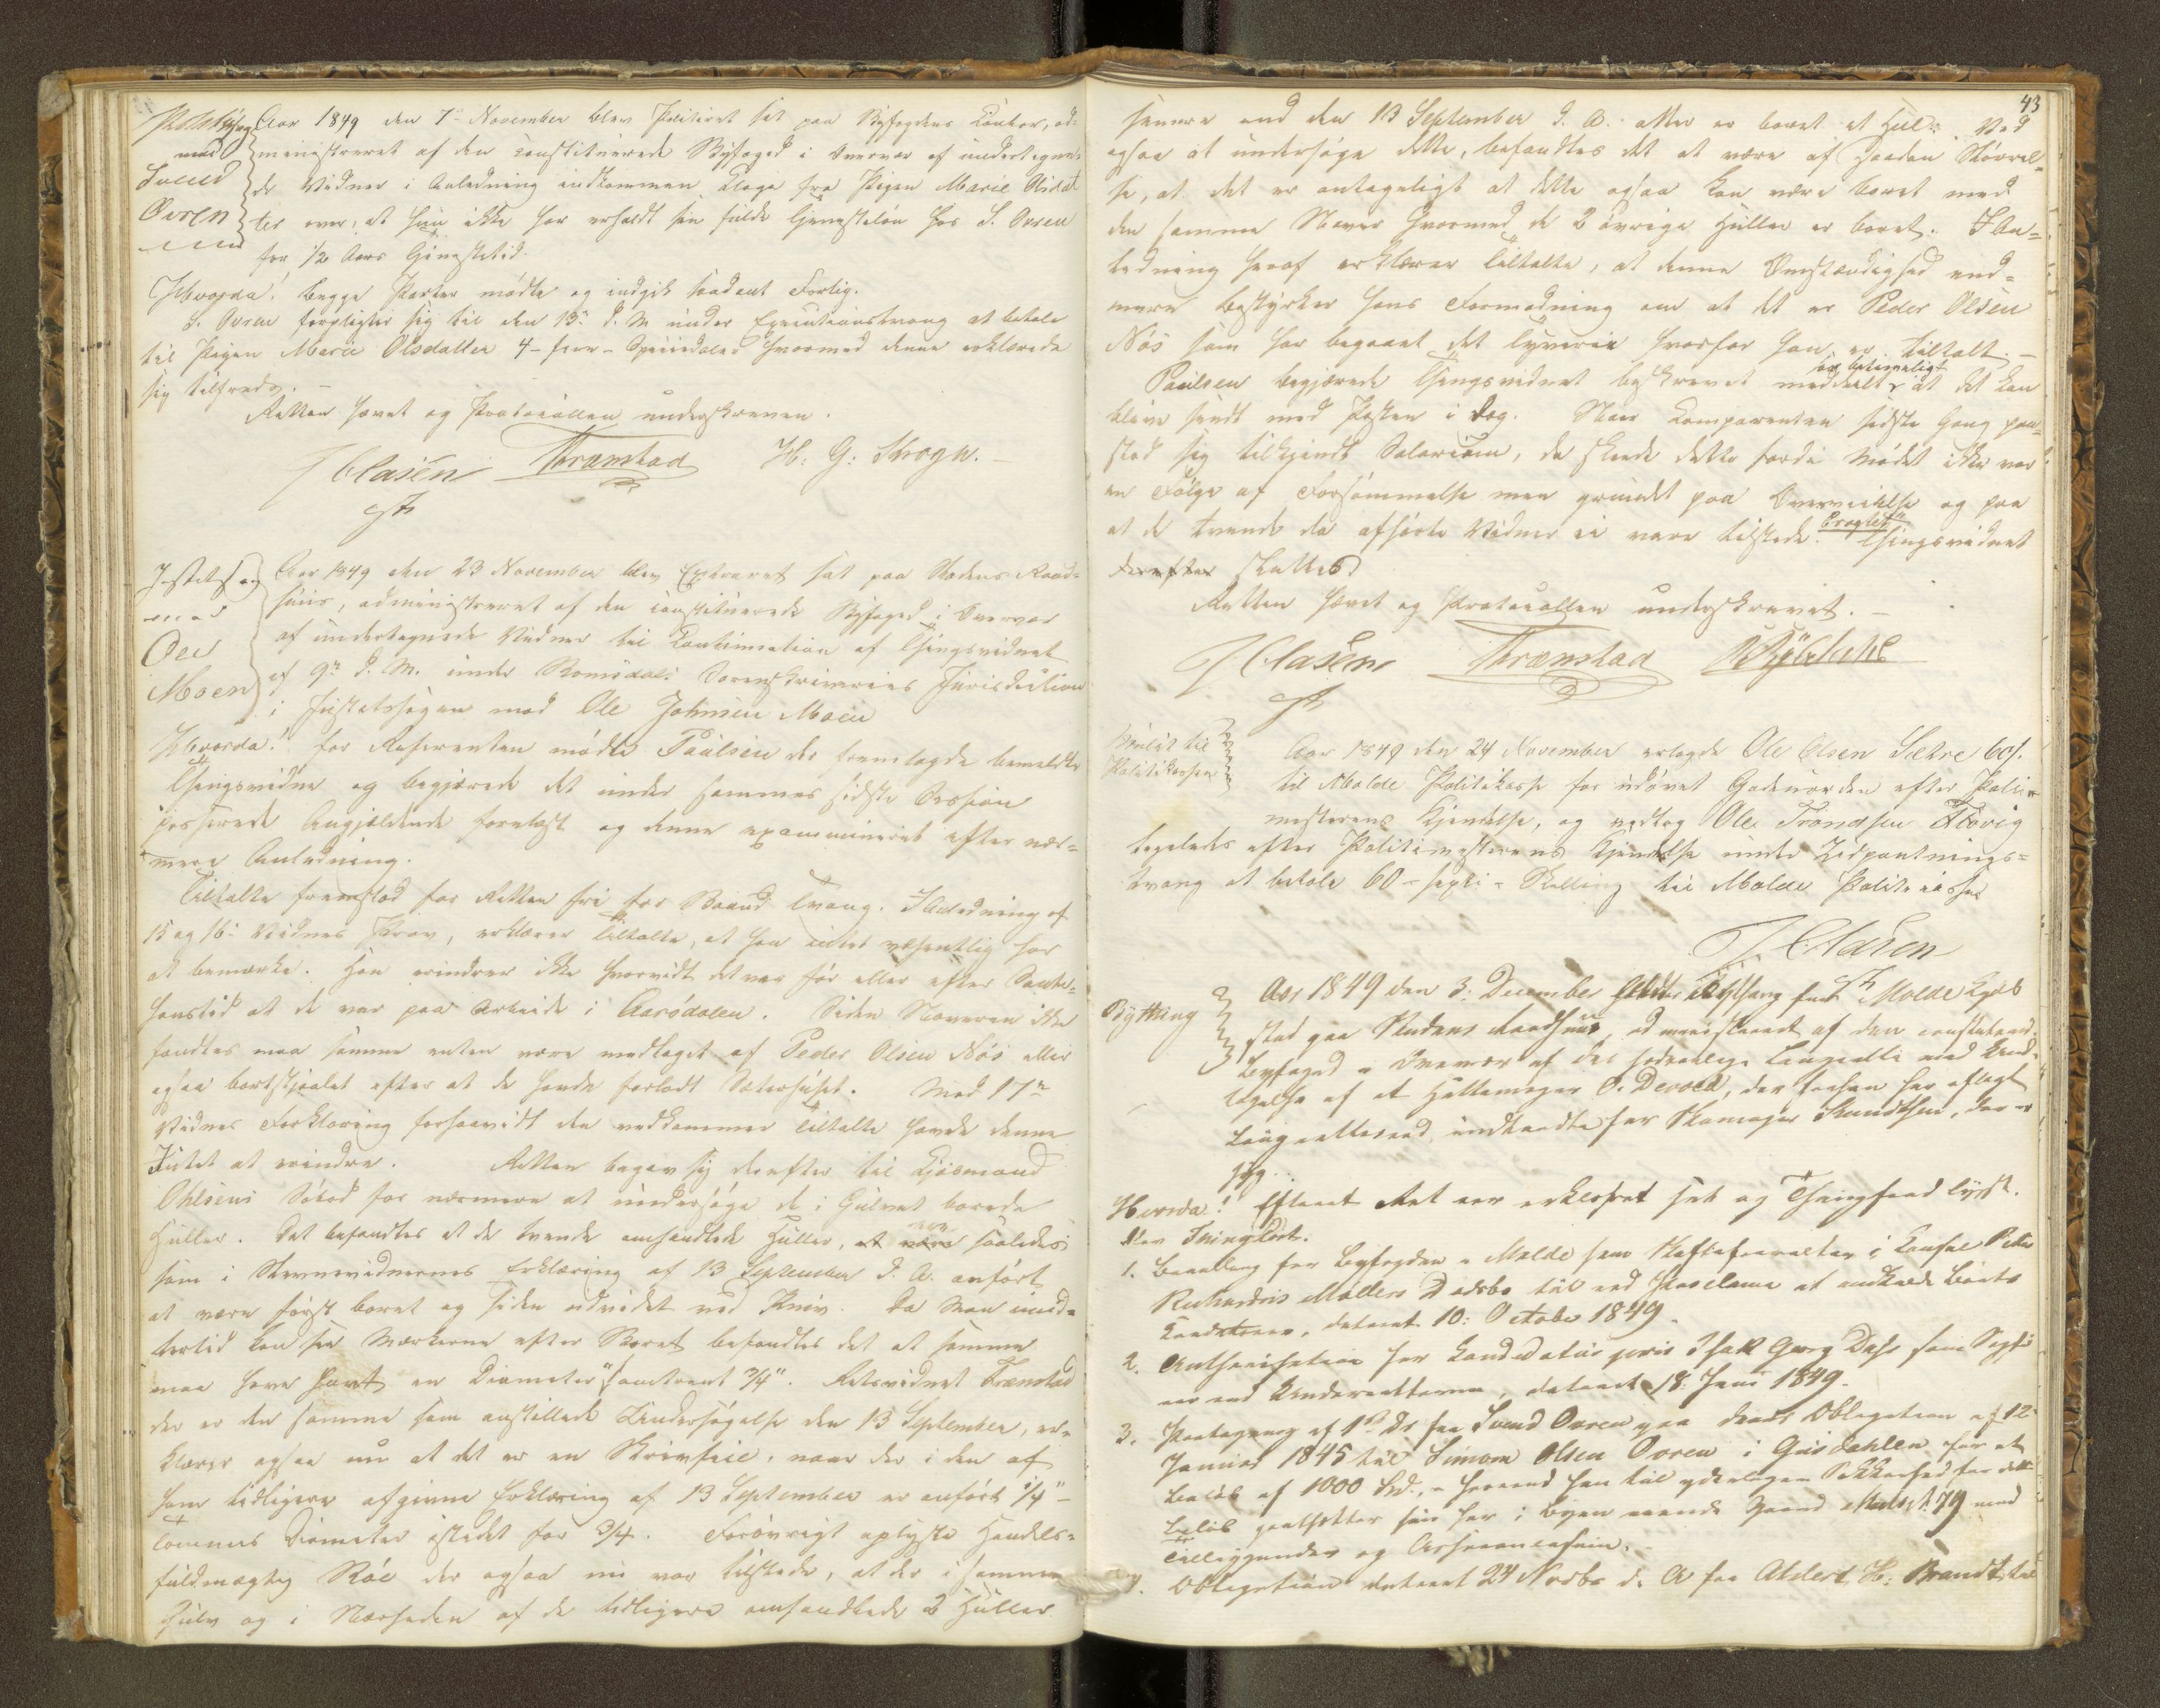 Politisag
mod
Svend
Oeren
Aar 1849 den 7de November blev Politiret sat paa Byfogdens Contor, ad-
ministreret af den constituerede Byfoged i Overvær af undertegne-
de Vidner i Anledning indkommen Klage fra Pigen Marie Olsdat-
ter over, at hun ikke har erholdt sin fulde Tjenesteløn hos S. Oeren
for 1/2 Aars Tjenestetid.
Hvorda! begge Parter mødte og indgik saadant Forlig.
S. Oeren forpligter sig til den 13de d. M. under Executionstvang at betale
til Pigen Marie Olsdatter 4 - fire - Speciedaler hvormed denne erklærede
sig tilfreds. -
Retten hævet og Protocollen underskreven.
J Clasen Thranstad H: G: Krogh.
Justitssag
mod
Ole
Moen
Aar 1849 den 23 November blev Extraret sat paa Stadens Raad-
huus, administreret af den constituerede Byfoged i Overvær
af undertegnede Vidner til Continuation af Thingsvidnet
af 9de d. M. under Romsdals Sorenskriveries Jurisdiction
i Justitssagen mod Ole Johnsen Moen
Hvorda! for Referenten mødte Paulsen der fremlagde bemeldte
Thingsvidne og begjærede det under sammes sidste Session
passerede Angjældende forelæst og denne examineret efter nær-
mere Anledning.
Tiltalte fremstod for Retten fri for Baand Tvang. I Anledning af
15 og 16de Vidnes Prov, erklærer Tiltalte, at han intet væsentlig har
at bemærke. Han erindrer ikke hvorvidt det var før eller efter Sanct-
hanstid at de var paa Arbeide i Aarödalen. Siden Naveren ikke
fandtes maa samme enten være medtaget af Peder Olsen Nös eller
ogsaa bortstjaalet efter at de havde forladt Sæterhuset. Med 17de
Vidnes Forklaring forsaavidt den vedkommer Tiltalte havde denne
Intet at erindre. Retten begav sig derefter til Kjøbmand
Ohlsens Söbod for nærmere at undersøge de i Gulvet borede
Huller. Det befandtes at de tvende omhandlede Huller, saaledes
som i Stevnevidnernes Erklæring af 13 September d. A. anført
at være først boret og siden udvidet ved Kniv. Da Man imid-
lertid kan see Mærkerne efter Boret befandtes det at samme
maa have havt en Diameter omtrent 3/4". Retsvidnet Transtad
der er den samme som anstillede Undersøgelse den 13 September, er-
klærer ogsaa nu at det er en Skrivfeil, naar der i den af
ham tidligere afgivne Erklæring af 13 September er anført 1/4"
Tommes Diameter istedet for 3/4. Forøvrigt oplyste Handels-
fuldmægtig Röe der ogsaa nu var tilstede, at der i samme
Gulv og i Nærheden af de tidligere omhandlede 2 Huller
43
senere end den 13 September d. A. atter er boret et Hul. Ved
ogsaa at undersøge dette, befandtes det at være af saadan Størrel-
se, at det er antageligt at dette ogsaa kan være boret med
den samme Naver hvormed de 2 øvrige Huller er boret. I An-
ledning heraf erklærer Tiltalte, at denne Omstændighed end-
mere bestyrker hans Formodning om at det er Peder Olsen
Nös som har begaaet det Tyverie hvorfor han er tiltalt. -
Paulsen begjærede Thingsvidnet beskrevet meddeelt saa betimeligt at det kan
blive sendt med Posten i Dag. Naar Comparenten sidste Gang paa-
stod sig tilkjendt Salarium, da skeede dette fordi Mødet ikke var
en Følge af Forsømmelse men grundet paa Overveielse og paa
at de tvende da afhørte Vidner ei vare tilstede. Thingsvidnet
derefter sluttet
Retten hævet og Protocollen underskrevet. -
J Clasen Thranstad
Mulct til
Politikassen
Aar 1849 den 24 November erlagde Ole Olsen Sætre 60 s.
til Molde Politikasse for udøvet Gadeuorden efter Politi-
mesterens Kjendelse, og vedtog Ole Trondsen Flovig
ligeledes efter Politimesterens Kjendelse under Udpantnings-
tvang at betale 60 - sexti - Skilling til Molde Politikasse
J. Clasen
Bything
Aar 1849 den 3: December holdtes Bything for Molde Kjøb
stad paa Stadens Raadhuus, administreret af den constituerede
Byfoged i Overvær af det sædvanlige Laugrette med Und-
tagelse af at Hattemager O. Devold, der havde
Laugrettesmand, indkaldte for Skomager Knudtsen, der er
syg.
Hvorda! Efterat Ret var erklæret sat og Thingfred lyst.
blev Thinglæst.
1. Bevilling for Byfogden i Molde som Skifteforvalter i Consul Peter
Richardus Møllers Dødsbo til ved Proclama at indkalde Boets
Creditorer, dateret 10: October 1849.
2. Authorisation for Candidatus juris Isak Georg Dahl som Sagfø
rer ved Underretterne, dateret 18: Juni 1849.
3. Paategning af 1ste Ds fra Svend Oeren paa hans Obligation af 12
Januar 1845 til Simon Olsen Oeren i Gusdahlen for et
Beløb af 1000 Spd., hvorved han til yderligere Sikkerhed for dette
Beløb pantsætter sin her i Byen eiende Gaard Matr. N. 79 med
Tilliggender og Assurancesum.
4. Obligation dateret 24 Novbr d. A fra Aldert H: Brandt til